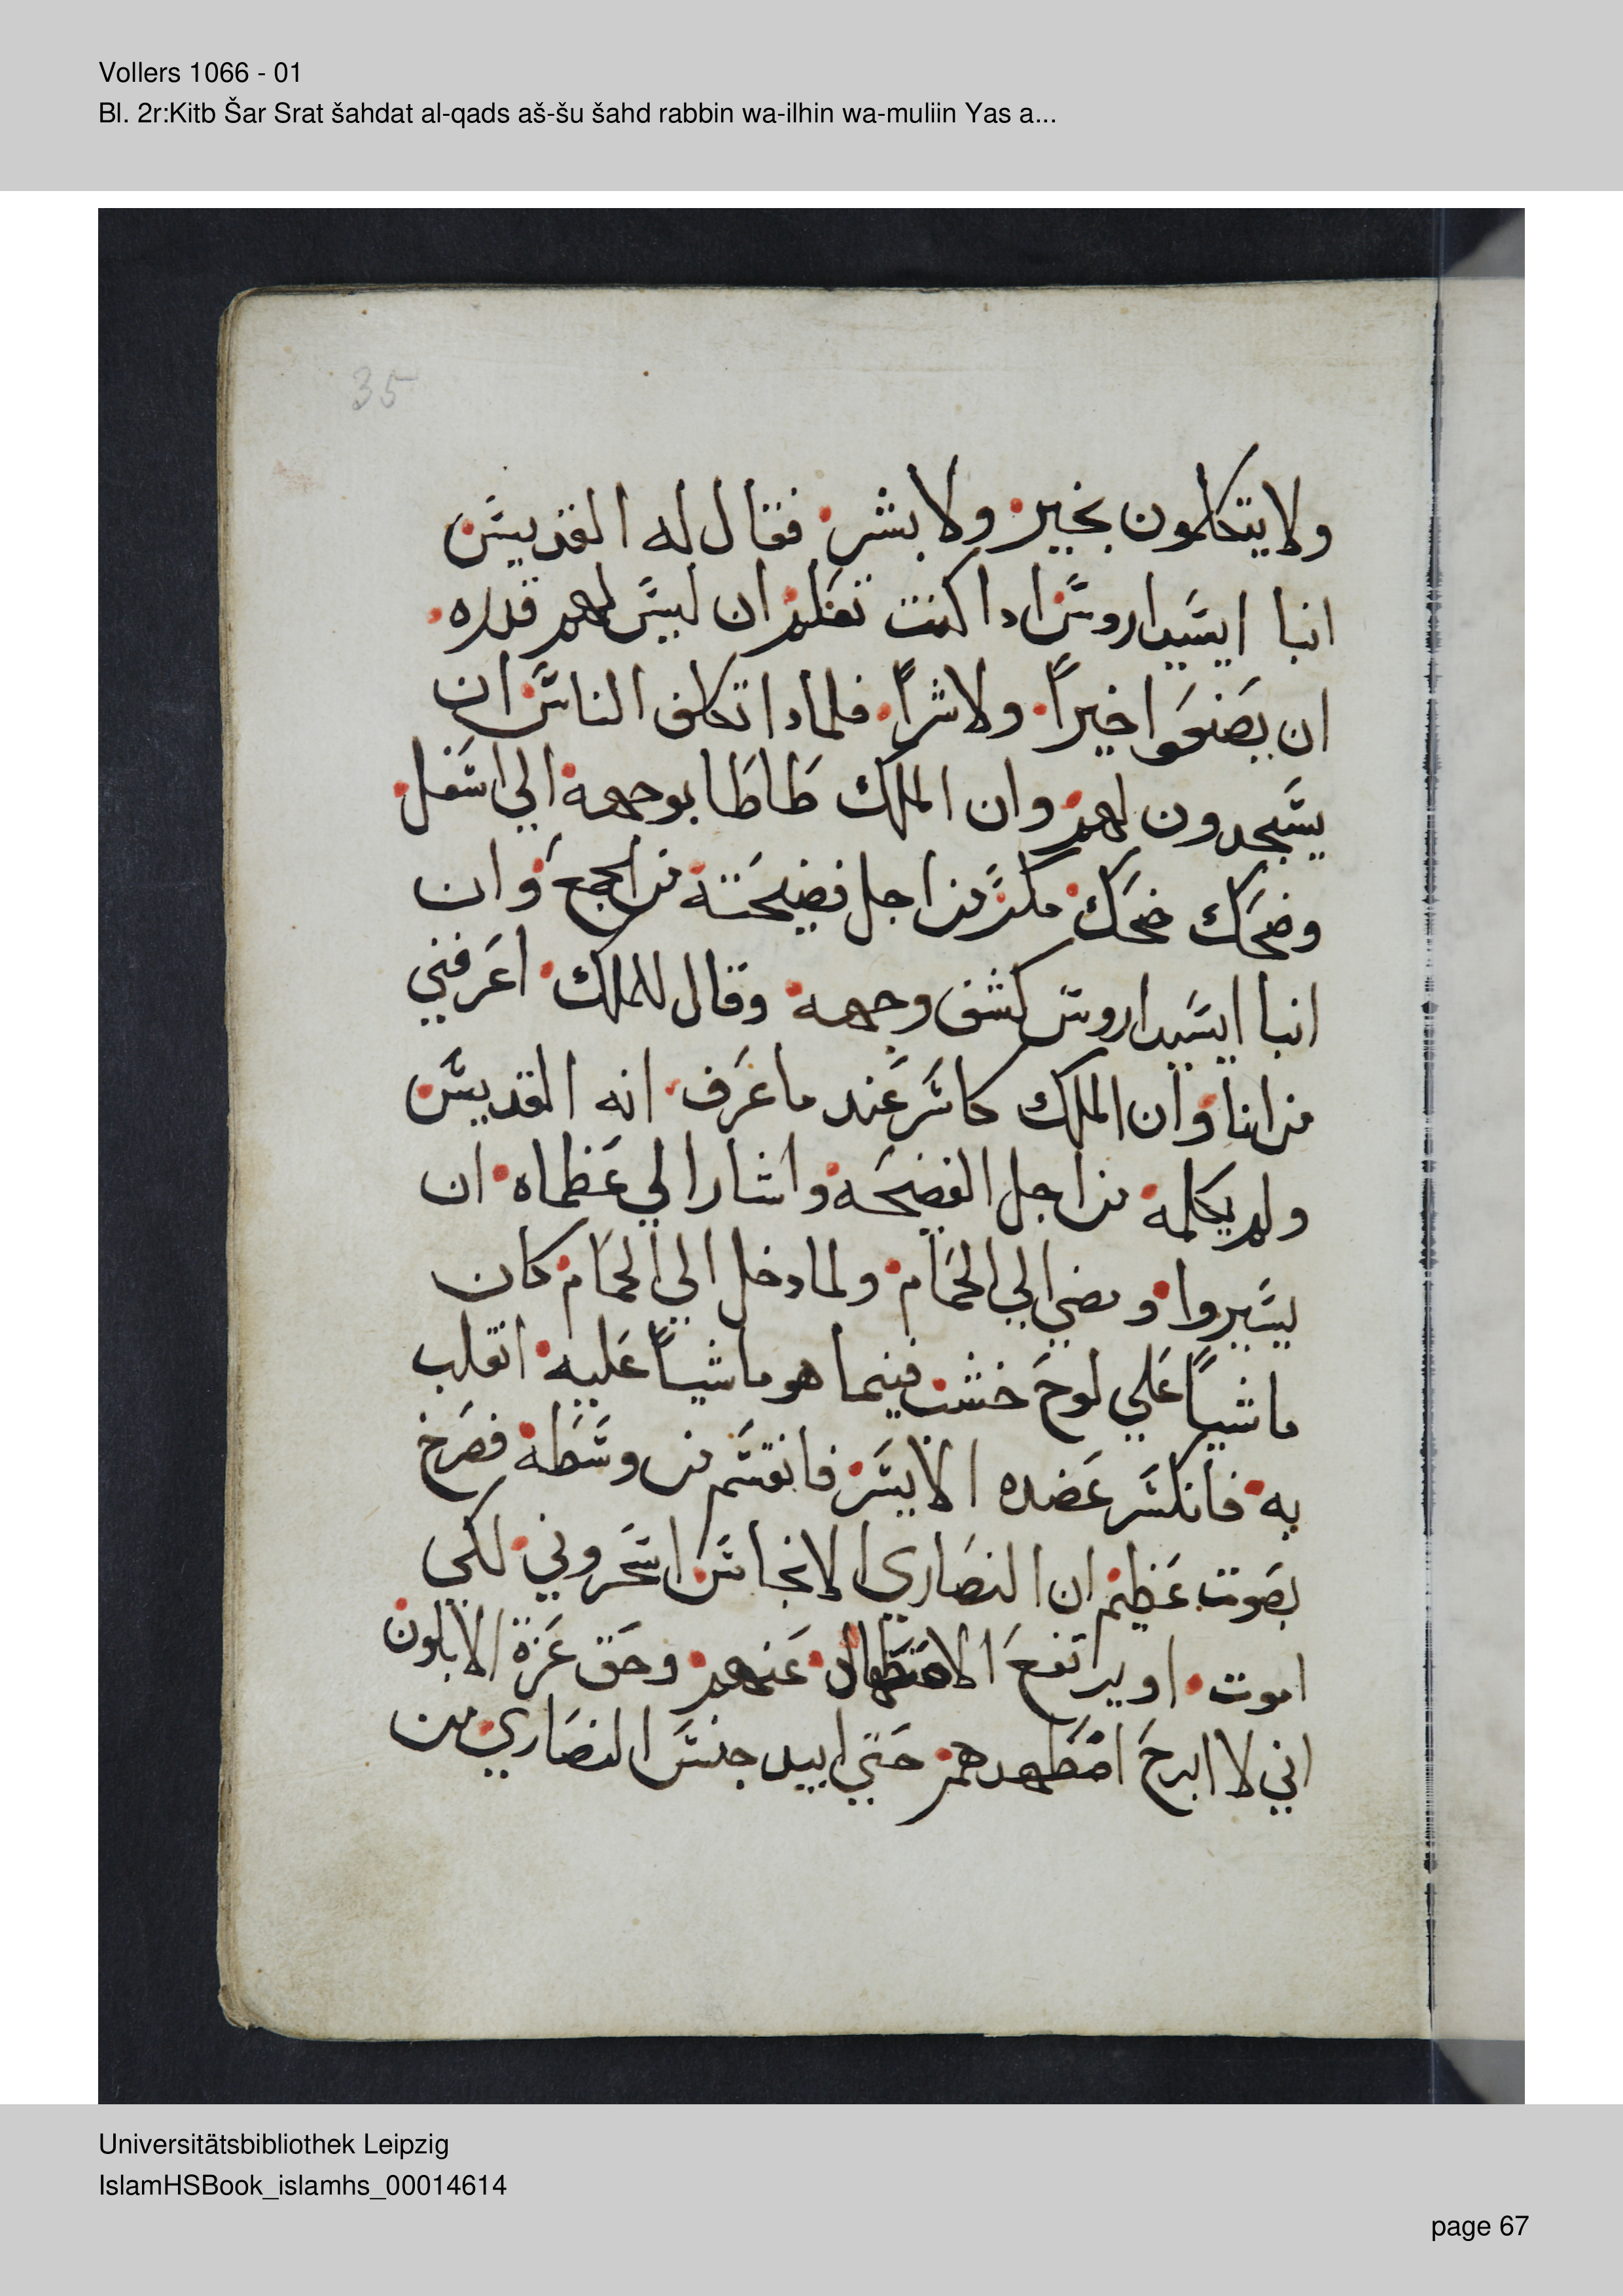 Vollers 1066 - 01
Bl. 2r:Kitb Šar Srat šahdat al-qads aš-šu šahd rabbin wa-ilhin wa-muliin Yas a...
35
ولا يتكلمون بخير ولا بشر فقال له القديس
انبا ايسيداروس ادا كنت تعلم ان ليس لهم قدره
ان يصنعوا خيراً ولا شراً فلمادا تكلف الناس ان
يسجدون لهم وان الملك طاطا بوجهه الي اسفل
وضحك ضحك مكر من اجل فضيحته من الجمع وان
انبا ايسيداروس كشف وجهه وقال للملك اعرفني
من انا وان الملك كاسر عند ما عرف انه القديس
ولم يكلمه من اجل الفضيحه واشار الي عظماه ان
يسيروا ومضي الي الحمام ولما دخل الي الحمام كان
ماشياً علي لوح خشب فينما هو ماشياً عليه انقلب
به فانكسر عضده الايسر فانقسم من وسطه فصرخ
بصوت عظيم ان النصاري الانجاس اسحروني لكي
اموت او يرتفع عنهم وحق عزة الابلون
اني لا ابرح امطهدهم حتي ابيد جنس النصاري من
Universitätsbibliothek Leipzig
IslamHSBook_islamhs_00014614
page 67